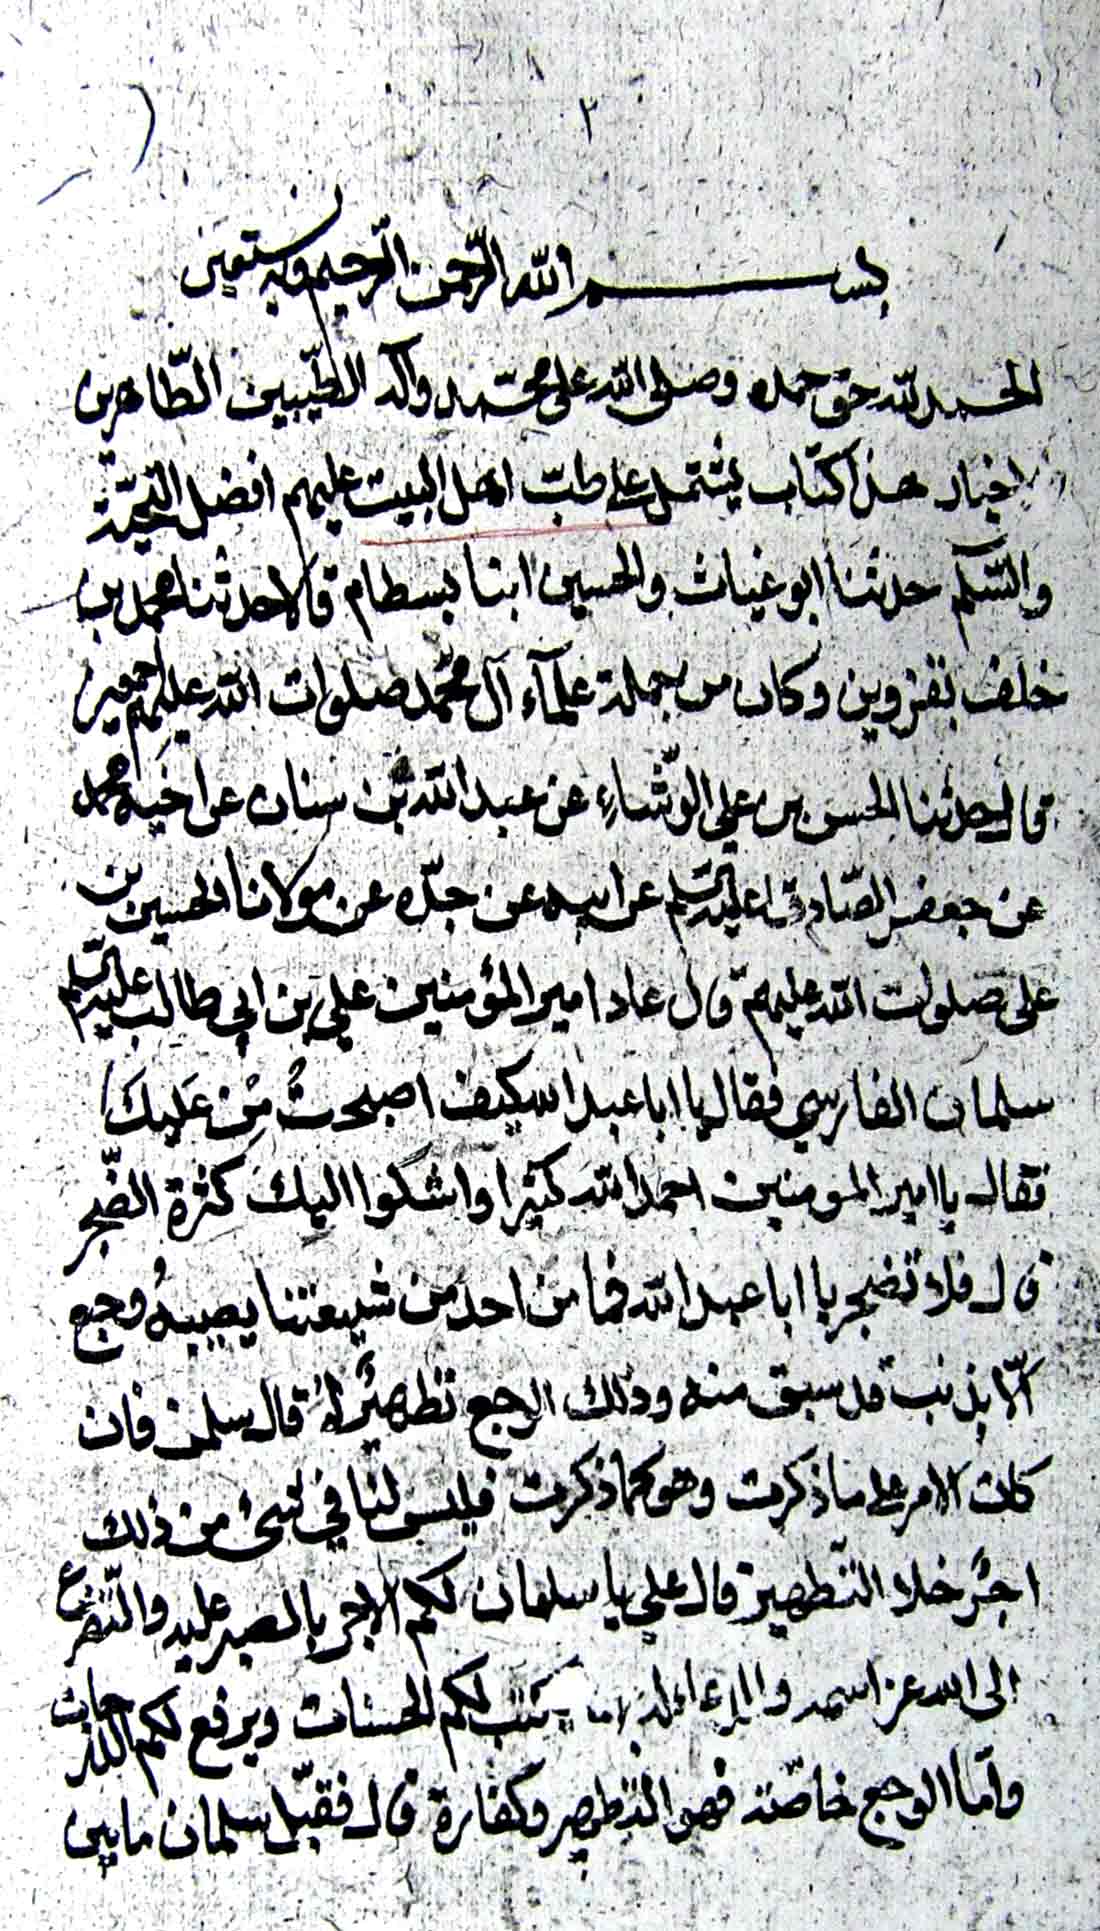 ٣
بسم الله الرحمن الرحيم وبه نستعين
الحمد لله حق حمده وصلى الله على محمد وآله الطيبين الطاهرين
الاخيار هذا كتاب يشتمل على طبّ اهل البيت عليهم افضل التحيّة
والسّلم حدثنا ابو غياث والحسين ابنا بسطام قالا حدثنا محمد بن
خلف بقزوين وكان من جملة علمآء آل محمّد صلوات الله عليهم اجمعين
قال حدثنا الحسن بن علي الوشّاء عن عبد الله بن سنان عن اخيه محمد
عن جعفر الصّادق عليه السّلم عن ابيه عن جدّه عن مولانا الحسين بن
على صلوات الله عليهم قال عاد امير المؤمنين علي بن ابي طالب عليه السّلم
سلمان الفارسي فقال يا ابا عبد الله كيف اصبحتُ مِن عَلِتكَ
فقال يا امير المومنين احمد الله كثيرا واشكوا اليك كثرة الضّجر
قال فلا تضجر يا ابا عبد الله فما من احد من شيعتنا يصيبه وجع
الّا بذنب قد سبق منه وذلك الوجع تطهيرٌ لهُ قال سلمن فان
كان الامر على ما ذكرت وهو كما ذكرت فليس لنا في شئ من ذلك
اجرٌ خلا التّطهير قال علي يا سلمان لكم الاجر بالصبر عليه والتّضرع
الى الله عز اسمه والدعاء له بهما يكتب لكم الحسنات ويرفع لكم الدرجات
وامّا الوجع خاصّة فهو التطهير وكفارة قال فقبّل سلمان ما بين